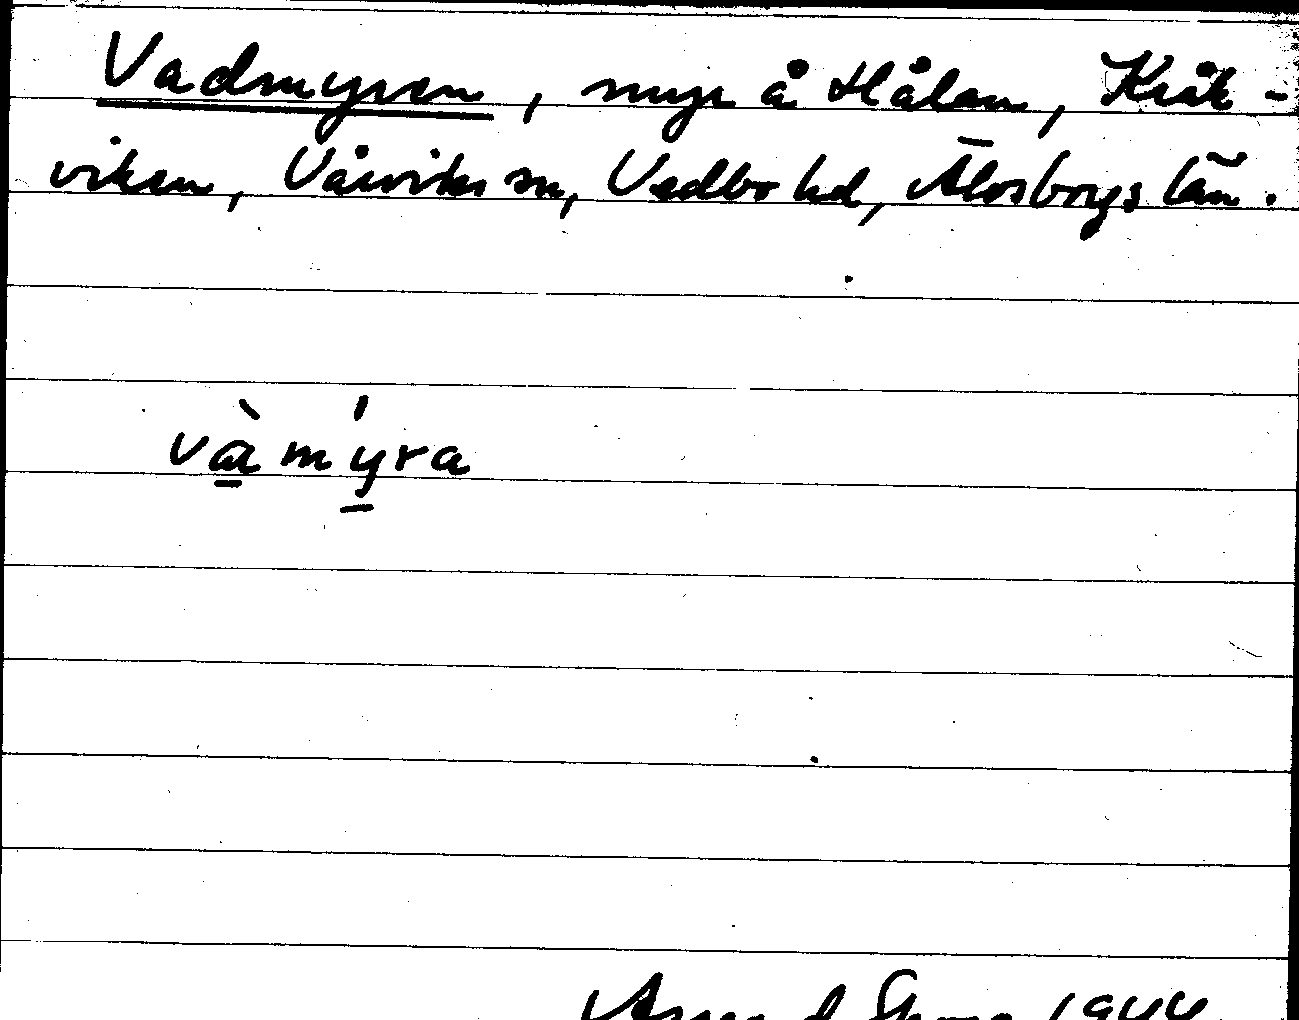 Vadmyren, myr å Hålan, Kråk-
viken, Vårviks sn, Vedbo hd, Älvsborgs län.
vàmýra
1944